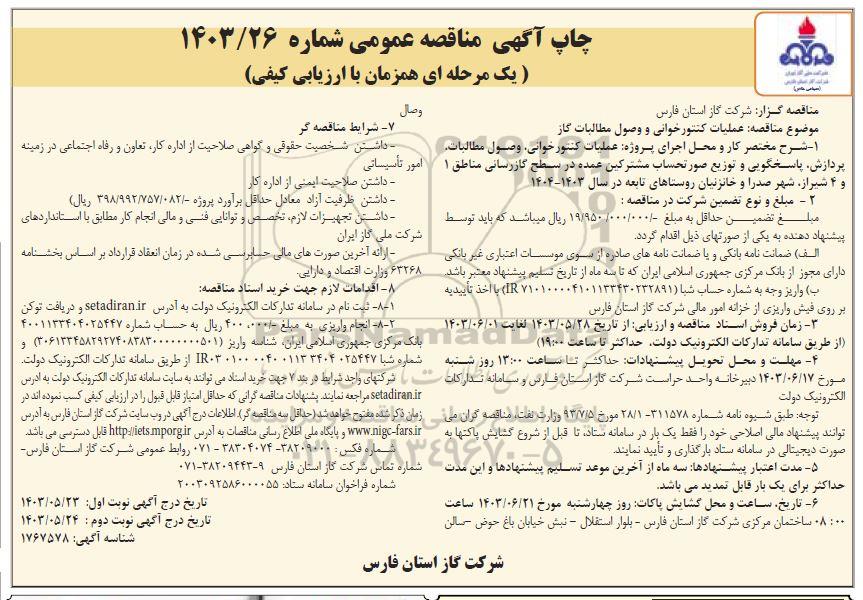 چاپ آگهی مناقصه عمومی شماره ۱۴۰۳/۲۶
( یک مرحله ای همزمان با ارزیابی کیفی)
شرکت ملی گاز ایران
شرکت گاز استان فارس
(سهامی خاص)
مناقصه گـزار: شرکت گاز استان فارس
موضوع مناقصه: عملیات کنتورخوانی و وصول مطالبات گاز
۱-شـرح مختصر کار و محـل اجرای پـروژه: عملیات کنتورخوانی، وصـول مطالبات،
پردازش، پاسـخگویی و توزیع صورتحساب مشترکین عمده در سـطح گازرسانی مناطق ۱
و ۴ شیراز، شهر صدرا و خانزنیان روستاهای تابعه در سال ۱۴۰۳-۱۴۰۴
۲ - مبلغ و نوع تضمین شرکت در مناقصه :
مبلـــغ تضمیـــن حداقل به مبلغ -/۱۹/۹۵۰/۰۰۰/۰۰۰ ریال میباشـد که باید توسط
پیشنهاد دهنده به یکی از صورتهای ذیل اقدام گردد.
الـف) ضمانت نامه بانکی و یا ضمانت نامه های صادره از سـوی موسسـات اعتباری غیر بانکی
دارای مجوز از بانک مرکزی جمهوری اسلامی ایران که تا سه ماه از تاریخ تسلیم پیشنهاد معتبر باشد.
ب) واریز وجه به شماره حساب شبا (IR ۷۱۰۱۰۰۰۰۴۱۰۱۱۳۳۴۳۰۲۳۲۸۹۱) با اخذ تأییدیه
بر روی فیش واریزی از خزانه امور مالی شرکت گاز استان فارس
۳- زمان فروش اسـناد مناقصه و ارزیابی: از تاریخ ۱۴۰۳/۰۵/۲۸ لغایت ۱۴۰۳/۰۶/۰۱
(از طریق سامانه تدارکات الکترونیک دولت. حداکثر تا ساعت ۱۹:۰۰)
۴- مهلـت و محـل تحویـل پیشـنهادات: حداکثر تـا سـاعت ۱۳:۰۰ روز شـنبه
مـورخ ۱۴۰۳/۰۶/۱۷ دبیرخانـه واحـد حراسـت شـرکت گاز اسـتان فـارس و سـامانه تـدارکات
الکترونیک دولت
توجه: طبق شـیوه نامه شـماره ۳۱۱۵۷۸-۲۸/۱ مورخ ۹۳/۷/۵ وزارت نفت، مناقصه گران می
توانند پیشنهاد مالی اصلاحی خود را فقط یک بار در سامانه ستاد، تا قبل از شروع گشایش پاکتها به
صورت دیجیتالی در سامانه ستاد بارگذاری و تأیید نمایند.
۵-مدت اعتبار پیشـنهادها: سه ماه از آخرین موعد تسـلیم پیشنهادها و این مدت
حداکثر برای یک بار قابل تمدید می باشد.
۶- تاریخ، ساعت و محل گشایش پاکات: روز چهارشنبه مورخ ۱۴۰۳/۰۶/۲۱ ساعت
۰۸:۰۰ ساختمان مرکزی شرکت گاز استان فارس - بلوار استقلال - نبش خیابان باغ حوض -سالن
وصال
۷- شرایط مناقصه گر
- داشـتن شـخصیت حقوقی و گواهی صلاحیت از اداره کار، تعاون و رفاه اجتماعی در زمینه
امور تأسیساتی
- داشتن صلاحیت ایمنی از اداره کار
- داشتن ظرفیت آزاد معادل حداقل برآورد پروژه -/۳۹۸/۹۹۲/۷۵۷/۰۸۲ ریال)
- داشـتن تجهیـزات لازم، تخصـص و توانایی فنـی و مالی انجام کار مطابق با اسـتانداردهای
شرکت ملی گاز ایران
- ارائه آخرین صورت های مالی حسابرسی شـده در زمان انعقاد قرارداد بر اسـاس بخشنامه
۶۳۲۶۸ وزارت اقتصاد و دارایی.
۸- اقدامات لازم جهت خرید اسناد مناقصه:
۸-۱- ثبت نام در سامانه تدارکات الکترونیک دولت به آدرس setadiran.ir و دریافت توکن
۸-۲- انجام واریزی به مبلغ -/۴۰۰,۰۰۰ ریال به حسـاب شماره ۴۰۰۱۱۳۳۴۰۴۰۲۵۴۴۷
بانک مرکزی جمهوری اسلامی ایران. شناسه واریز (۳۰۶۱۳۳۴۵۸۲۹۲۷۴۰۸۳۸۳۰۰۰۰۰۰۰۰۵۰۱) و
شماره شبا IR۰۳۰۱۰۰۰۰۴۰۰۱۱۳۳۴۰۴۰۲۵۴۴۷ از طریق سامانه تدارکات الکترونیک دولت.
شرکتهای واجد شرایط در بند ۷ جهت خرید اسناد می توانند به سایت سامانه تدارکات الکترونیک دولت به آدرس
setadiran.ir مراجعه نمایند. پیشنهادات مناقصه گرانی که حداقل امتیاز قابل قبول را در ارزیابی کیفی کسب نموده اند در
زمان ذکر شده مفتوح خواهد شد (حداقل سه مناقصه گر). اطلاعات درج آگهی در وب سایت شرکت گاز استان فارس به آدرس
www.nigc-fars.ir و پایگاه ملی اطلاع رسانی مناقصات به آدرس http://iets.mporg.ir قابل دسترسی می باشد.
شـماره فکس : ۳۸۲۰۹۰۰۰- ۳۸۳۰۴۰۷۴ -۰۷۱ روابط عمومی شـرکت گاز اسـتان فارس-
شماره تماس شرکت گاز استان فارس ۹-۳۸۲۰۹۴۴۳-۰۷۱
شماره فراخوان سامانه ستاد: ۲۰۰۳۰۹۲۵۸۶۰۰۰۰۵۵
تاریخ درج آگهی نوبت اول: ۱۴۰۳/۰۵/۲۳
تاریخ درج آگهی نوبت دوم : ۱۴۰۳/۰۵/۲۴
شناسه آگهی: ۱۷۶۷۵۷۸
شرکت گاز استان فارس
۰۲۱-۸۸۳۴۹۶۷۰-۵